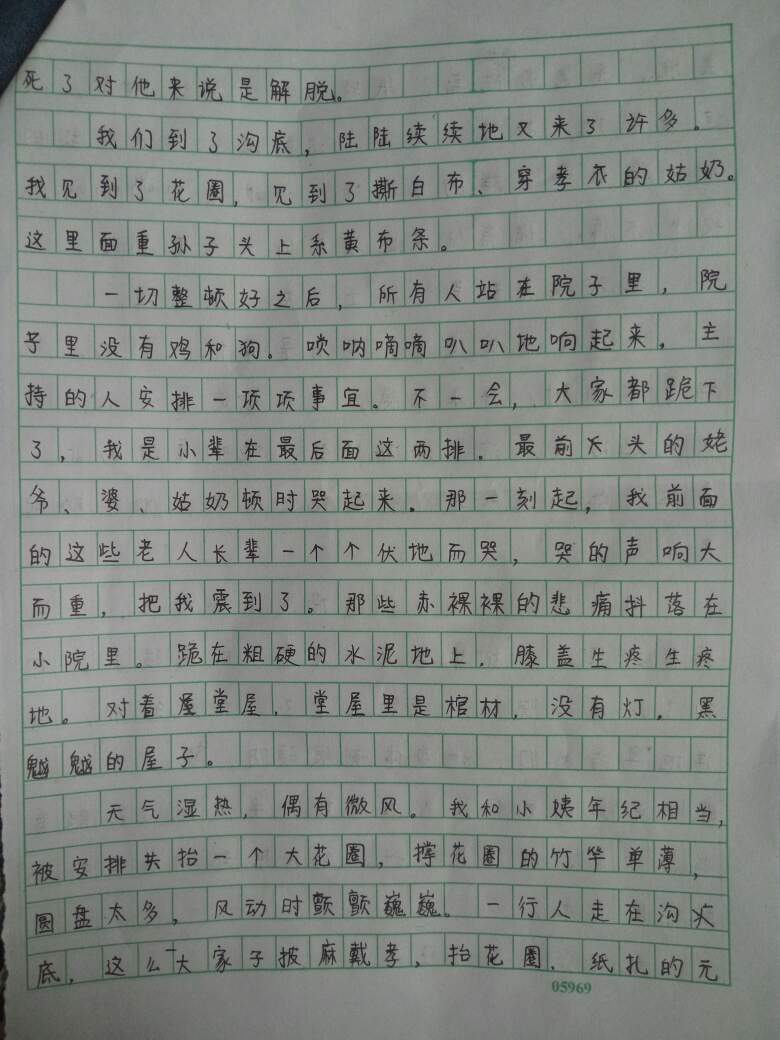 死了对他来说是解脱。
我们到了沟底，陆陆续续地又来了许多。
我见到了花圈，见到了撕白布、穿孝衣的姑奶。
这里面重孙子头上系黄布条。
一切整顿好之后，所有人站在院子里，院
子里没有鸡和狗。唢呐嘀嘀叭叭地响起来，主
持的人安排一项项事宜。不一会，大家都跪下
了，我是小辈在最后面这两排。最前头的姥
爷、婆、姑奶顿时哭起来。那一刻起，我前面
的这些老人长辈一个个伏地而哭，哭的声响大
而重，把我震到了。那些赤裸裸的悲痛抖落在
小院里。跪在粗硬的水泥地上，膝盖生疼生疼
地。对着屋堂屋，堂屋里是棺材，没有灯。黑
魆魆的屋子。
天气湿热，偶有微风。我和小姨年纪相当，
被安排共抬一个大花圈，撑花圈的竹竿单薄，
圆盘太多，风动时颤颤巍巍。一行人走在沟
底，这么一大家子披麻戴孝，抬花圈、纸扎的元
05969